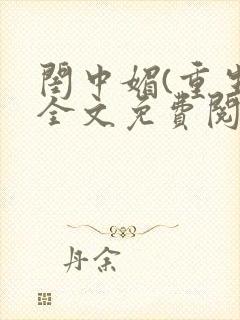 閨中媚(重生
全文免費閱
丹余